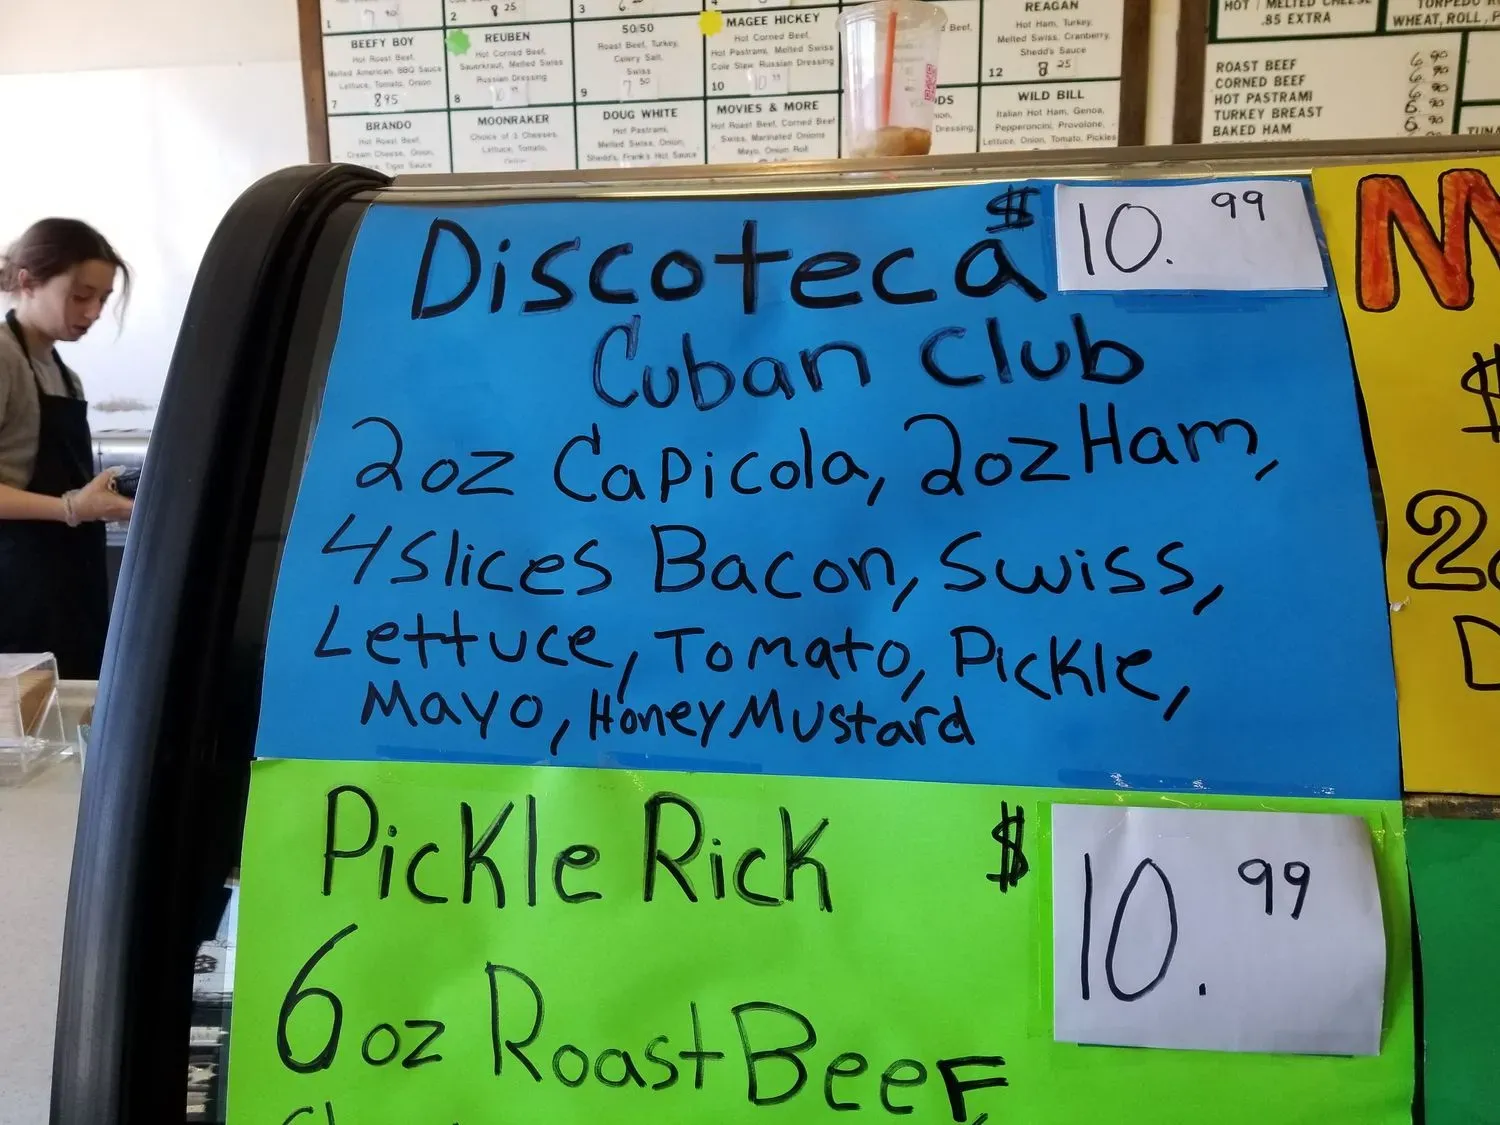 1
2 8 25
3
REAGAN
Hot Ham, Turkey,
Melted Swiss, Cranberry,
Shedd's Sauce
12 8 25
HOT / MELTED CHEESE
.85 EXTRA
WHEAT, ROLL,
BEEFY BOY
Hot Roast Beef,
Melted American, BBQ Sauce
Lettuce, Tomato, Onion
7 8 95
REUBEN
Hot Corned Beef,
Sauerkraut, Melted Swiss
Russian Dressing
8
50/50
Roast Beef, Turkey,
Celery Salt,
Swiss
9 7 50
MAGEE HICKEY
Hot Corned Beef,
Hot Pastrami, Melted Swiss
Cole Slaw, Russian Dressing
10
Beef,
ROAST BEEF 6.90
CORNED BEEF 6.90
HOT PASTRAMI 6.90
TURKEY BREAST 6.90
BAKED HAM 6.90
BRANDO
Hot Roast Beef,
Cream Cheese, Onion,
Tiger Sauce
MOONRAKER
Choice of 3 Cheeses,
Lettuce, Tomato,
DOUG WHITE
Hot Pastrami,
Melted Swiss, Onion,
Shedd's, Frank's Hot Sauce
MOVIES & MORE
Hot Roast Beef, Corned Beef
Swiss, Marinated Onions
Mayo, Onion Roll
Dressing,
WILD BILL
Italian Hot Ham, Genoa,
Pepperoncini, Provolone,
Lettuce, Onion, Tomato, Pickles
Discoteca $ 10.99
Cuban Club
2oz Capicola, 2oz Ham,
4 Slices Bacon, Swiss,
Lettuce, Tomato, Pickle,
Mayo, Honey Mustard
M
$
2
D
Pickle Rick $ 10.99
6 oz Roast Beef